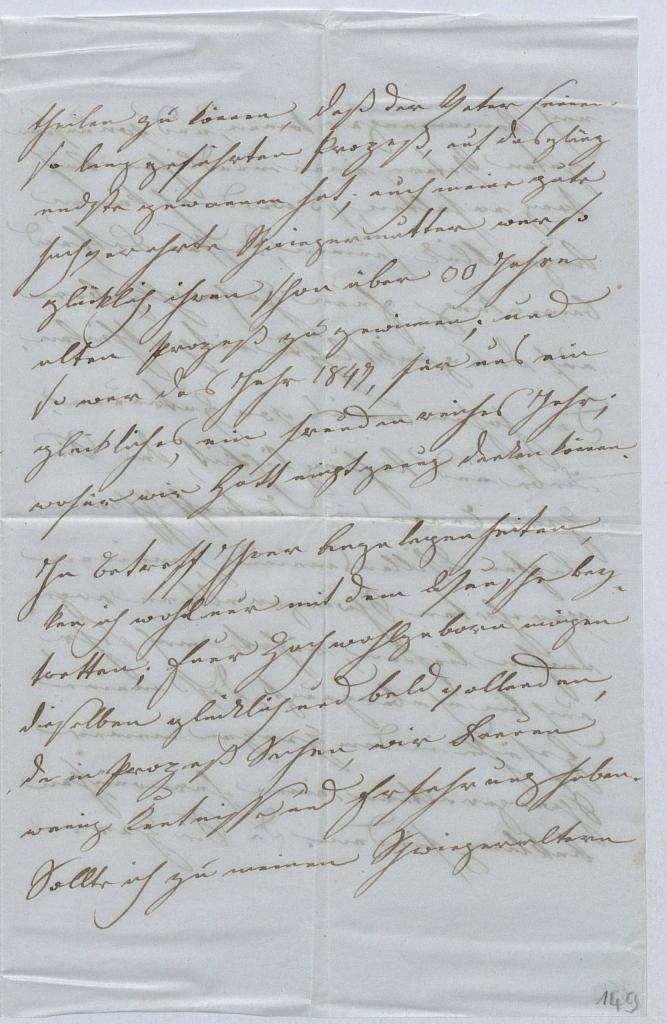 theilen zu können, daß der Vater seinen
so lang geführten Prozeß, auf das glän
endste gewonnen hat; auch meine gute
hochverehrte Schwiegermutter war so
glücklich, ihren schon über 00 Jahre
alten Prozeß zu gewinnen; und
so war das Jahr 1847, für uns ein
glückliches, ein freudenreiches Jahr;
wofür wir Gott nicht genug danken können.
In Betreff Ihrer Angelegenheiten,
kan ich wohl nur mit dem Wunsche bey-
tretten; Euer Hochwohlgeborn mögen
dieselben glücklich und bald vollenden,
da in Prozeß Sachen, wir Frauen
wenig Kentniße und Erfahrung haben.
Sollte ich zu meinen Schwiegereltern
149